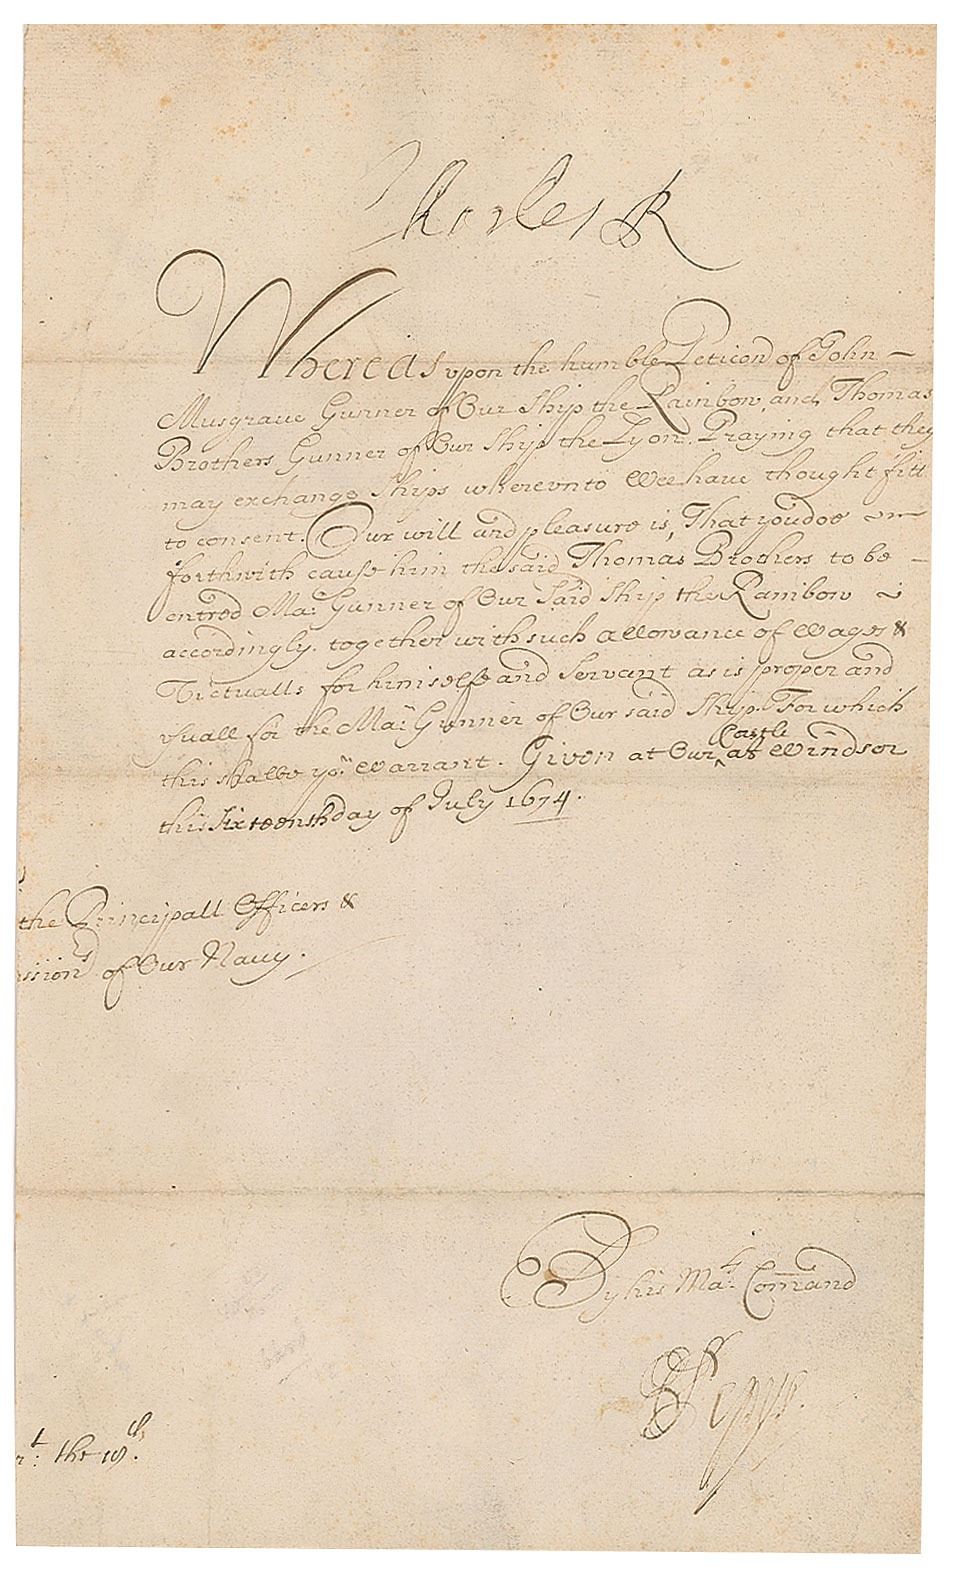 Charles R
Whereas upon the humble Peticon of John
Musgrave Gunner of Our Ship the Rainbow, and Thomas
Brothers Gunner of Our Ship the Lyon. Praying that they
may exchange Ships wherevnto Wee have thought fitt
to consent. Our will and pleasure is, That you doe
forthwith cause him the said Thomas Brothers to be
entred Mar. Gunner of Our Said Ship the Rainbow
accordingly. together with such allowance of Wages &
Victualls for himselfe and Servant as is proper and
vsuall for the Mar. Gunner of Our said Ship. For which
this shalbe yor. Warrant. Given at Our Castle at Windsor
this Sixteenth day of July 1674.
the Principall Officers &
issionrs of Our Navy.
By his Mats. Comand
SPepys.
t: the 19th.